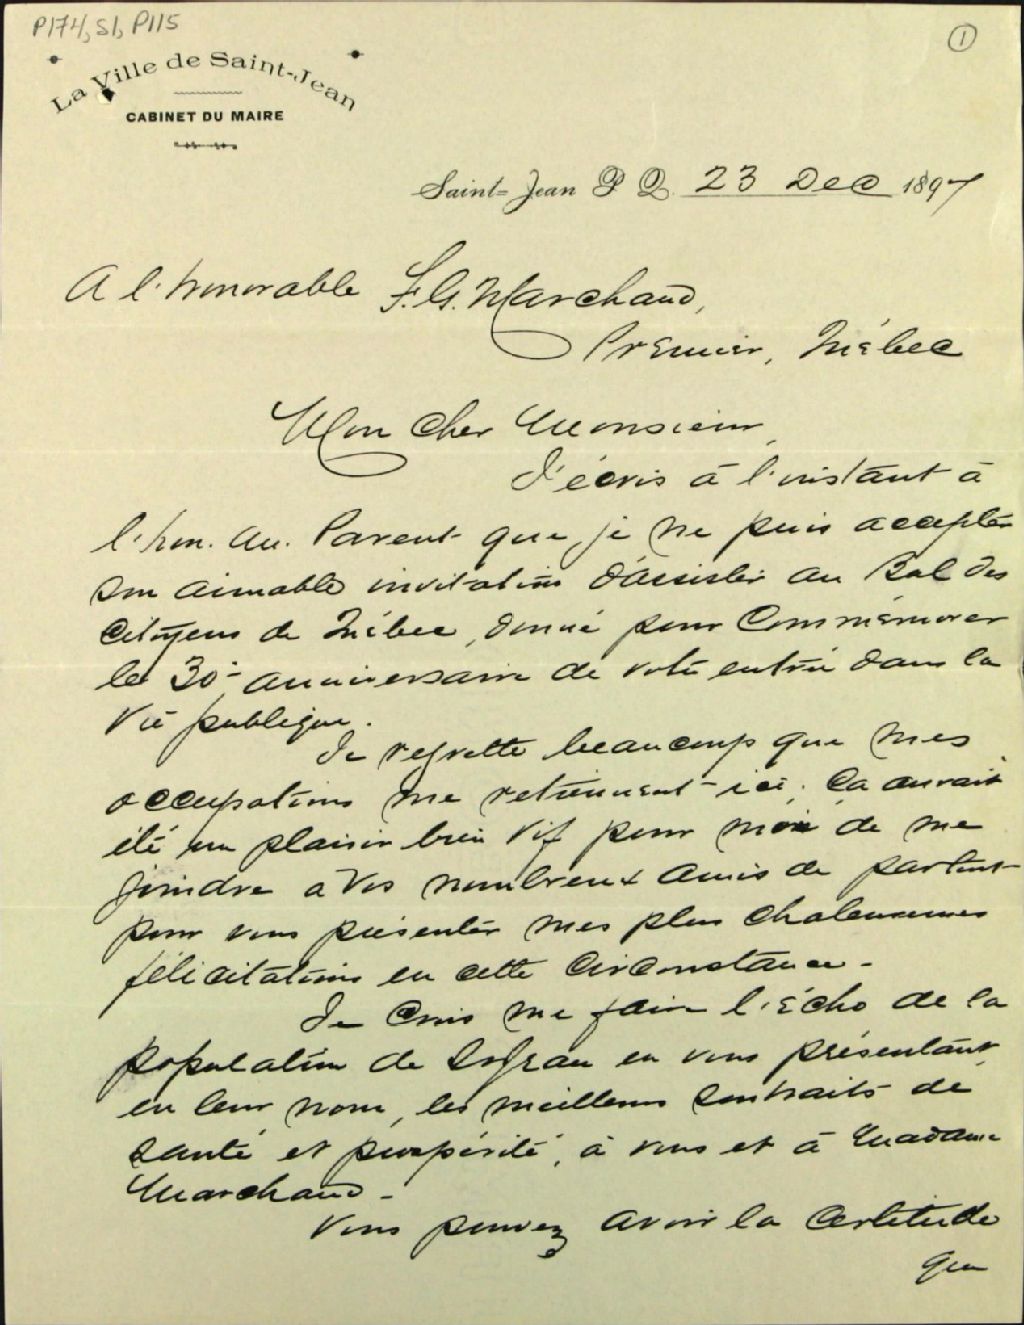 P174, S1, P115
1
La Ville de Saint-Jean
CABINET DU MAIRE
Saint-Jean P Q 23 Dec 1897
A l'honorable F. G. Marchand,
Premier, Québec
Mon cher Monsieur,
J'écris à l'instant à
l'hon. Parent que je ne puis accepter
son aimable invitation d'assister au Bal des
citoyens de Québec, donné pour commémorer
le 30e anniversaire de votre entrée dans la
vie publique.
Je regrette beaucoup que mes
occupations me retiennent ici. Ca aurait
été un plaisir bien vif pour moi de me
joindre a vos nombreux amis de partout
pour vous présenter mes plus chaleureuses
félicitations en cette circonstance -
Je crois me faire l'écho de la
population de St Jean en vous présentant,
en leur nom, les meilleurs souhaits de
santé et prospérité, à vous et à Madame
Marchand -
Vous pouvez avoir la certitude
que